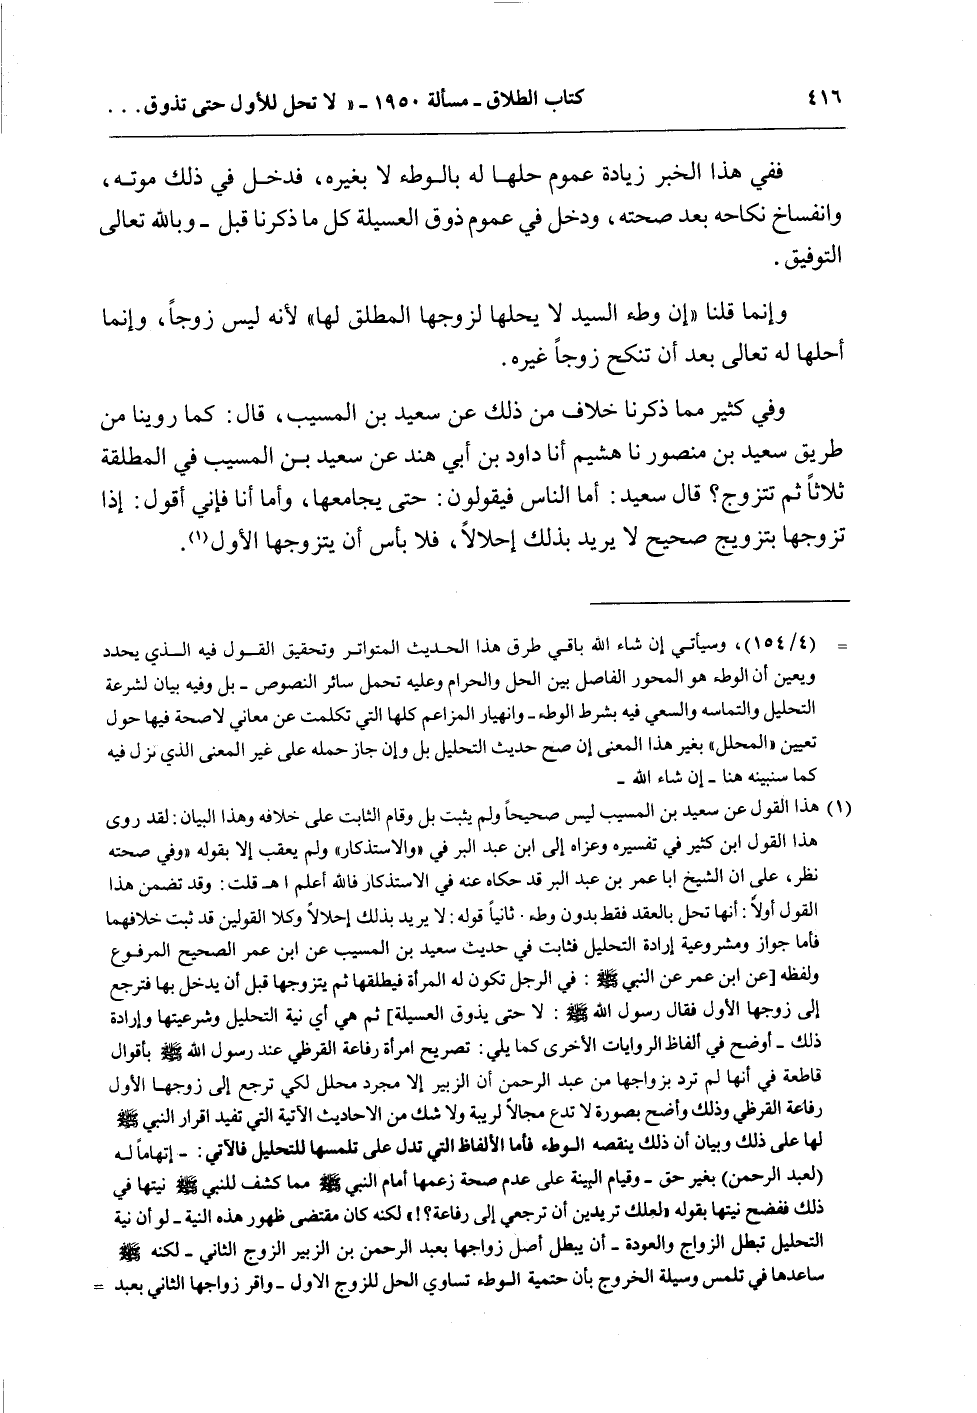 ٤١٦ كتاب الطلاق ـ مسألة ١٩٥٠ ـ « لا تحل للأول حتى تذوق . . .
ففي هذا الخبر زيادة عموم حلهـا له بالـوطء لا بغيره، فدخـل في ذلك موتـه،
وانفساخ نكاحه بعد صحته، ودخل في عموم ذوق العسيلة كل ما ذكرنا قبل ـ وبالله تعالى
التوفيق.
وإنما قلنا «إن وطء السيد لا يحلها لزوجها المطلق لها» لأنه ليس زوجاً، وإنما
أحلها له تعالى بعد أن تنكح زوجاً غيره.
وفي كثير مما ذكرنا خلاف من ذلك عن سعيد بن المسيب، قال: كما روينا من
طريق سعيد بن منصور نا هشيم أنا داود بن أبي هند عن سعيد بـن المسيب في المطلقة
ثلاثاً ثم تتزوج؟ قال سعيد: أما الناس فيقولون: حتى يجامعها، وأما أنا فإني أقول: إذا
تزوجها بتزويج صحيح لا يريد بذلك إحلالاً، فلا بأس أن يتزوجها الأول(١).
= (١٥٤/٤)، وسيأتـي إن شاء الله باقـي طرق هذا الحـديث المتواتـر وتحقيق القـول فيه الـذي يحدد
ويعين أن الوطء هو المحور الفاصل بين الحل والحرام وعليه تحمل سائر النصوص ـ بل وفيه بيان لشرعة
التحليل والتماسه والسعي فيه بشرط الوطء ـ وانهيار المزاعم كلها التي تكلمت عن معاني لا صحة فيها حول
تعيين «المحلل» بغير هذا المعنى إن صح حديث التحليل بل وإن جاز حمله على غير المعنى الذي نزل فيه
كما سنبينه هنا ـ إن شاء الله ـ
(١) هذا القول عن سعيد بن المسيب ليس صحيحاً ولم يثبت بل وقام الثابت على خلافه وهذا البيان: لقد روى
هذا القول ابن كثير في تفسيره وعزاه إلى ابن عبد البر في «والاستذكار» ولم يعقب إلا بقوله «وفي صحته
نظر، على ان الشيخ ابا عمر بن عبد البر قد حكاه عنه في الاستذكار فالله أعلم ا هـ قلت: وقد تضمن هذا
القول أولاً: أنها تحل بالعقد فقط بدون وطء. ثانياً قوله: لا يريد بذلك إحلالاً وكلا القولين قد ثبت خلافهما
فأما جواز ومشروعية إرادة التحليل فثابت في حديث سعيد بن المسيب عن ابن عمر الصحيح المرفـوع
ولفظه [عن ابن عمر عن النبي ﷺ : في الرجل تكون له المرأة فيطلقها ثم يتزوجها قبل أن يدخل بها فترجع
إلى زوجها الأول فقال رسول الله ﷺ : لا حتى يذوق العسيلة] ثم هي أي نية التحليل وشرعيتها وإرادة
ذلك ـ أوضح في ألفاظ الروايات الأخرى كما يلي: تصريح امرأة رفاعة القرظي عند رسول الله ﷺ بأقوال
قاطعة في أنها لم ترد بزواجها من عبد الرحمن أن الزبير إلا مجرد محلل لكي ترجع إلى زوجهـا الأول
رفاعة القرظي وذلك وأضح بصورة لا تدع مجالاً لريبة ولا شك من الاحاديث الآتية التي تفيد اقرار النبي ﷺ
لها على ذلك وبيان أن ذلك ينقصه الـوطء فأما الألفاظ التي تدل على تلمسها للتحليل فالآتي: ـ إتهاماً لـه
(لعبد الرحمن) بغير حق ـ وقيام البينة على عدم صحة زعمها أمام النبي ﷺ مما كشف للنبي ﷺ نيتها في
ذلك ففضح نيتها بقوله «لعلك تريدين أن ترجعي إلى رفاعة؟!» لكنه كان مقتضى ظهور هذه النية ـ لو أن نية
التحليل تبطل الزواج والعودة ـ أن يبطل أصل زواجها بعبد الرحمن بن الزبير الزوج الثاني ـ لكنه ﷺ
ساعدها في تلمس وسيلة الخروج بأن حتمية الـوطء تساوي الحل للزوج الاول ـ واقر زواجها الثاني بعبد =